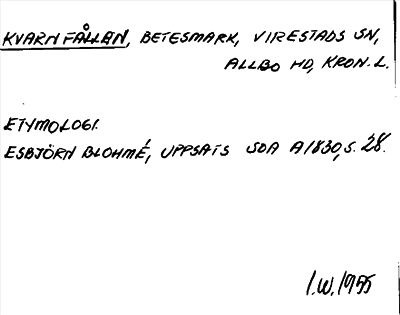 KVARNFÅLLEN, BETESMARK, VIRESTADS SN,
ALLBO HD, KRON. L.
ETYMOLOGI.
ESBJÖRN BLOHMÉ, UPPSATS SDA A1830, S. 28.
I.W. 1955